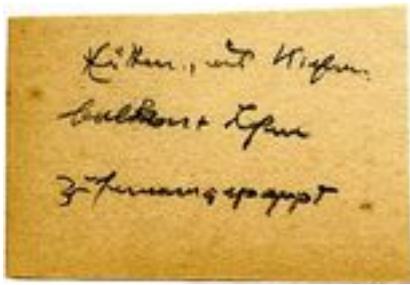 Hütten, mit Kiefern
balken + Lehm
zusammengepappt